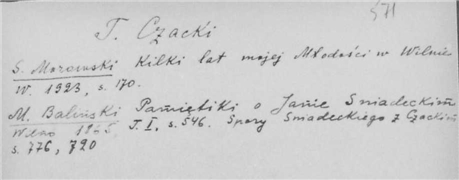 571
T. Czacki
S. Morawski Kilki lat mojej Młodości w Wilnie
W. 1923, s. 170.
M. Baliński Pamiętiki o Janie Śniadeckim
Wilno T. I, s. 546. Spory Śniadeckiego z Czackim
s. 776, 790